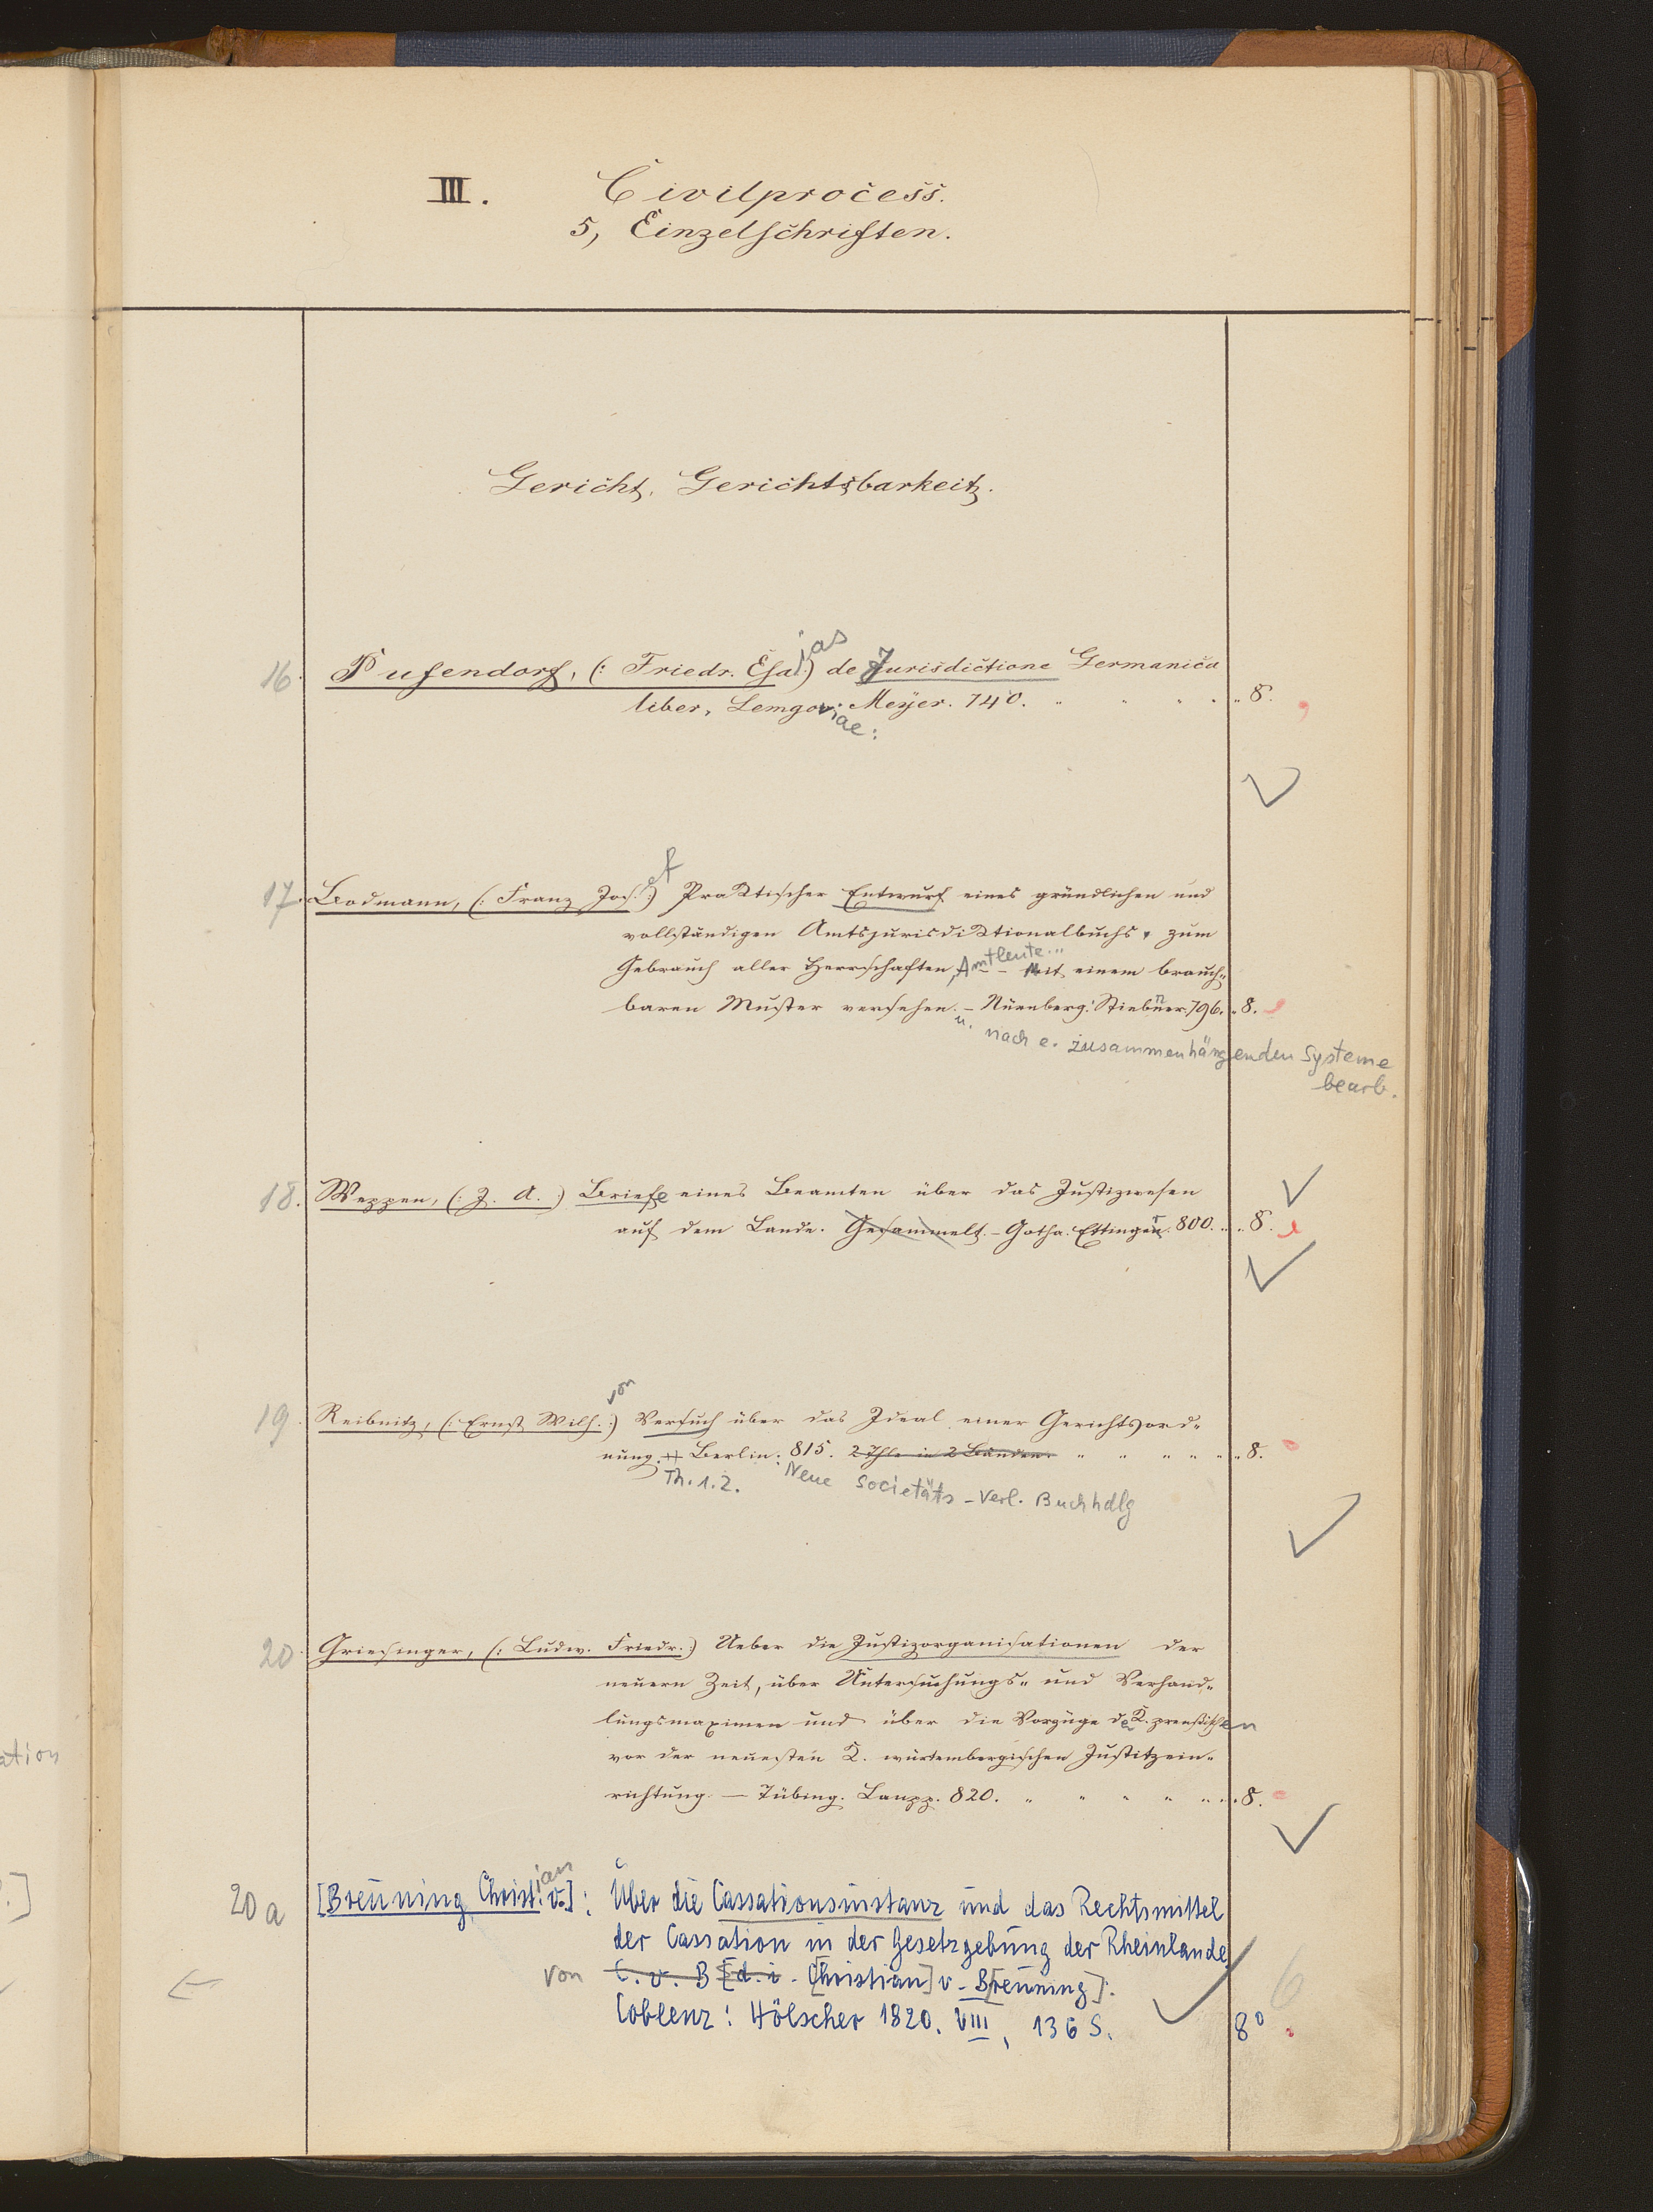 III. Civilprocess.
5, Einzelschriften.
Gericht, Gerichtsbarkeit.
16. Pufendorf, (: Friedr. Esajas) de Jurisdictione Germanica
liber, Lemgoviae: Meyer. 740. " " " " " 8.
17. Bodmann, (: Franz Josef :) Praktischer Entwurf eines gründlichen und
vollständigen Amtsjurisdiktionalbuchs, zum
Gebrauch aller Herrschaften, Amtleute... - Mit einem brauch=
baren Muster versehen. - Nürnberg: Stiebner. 796. " 8.
u. nach e. zusammenhängenden Systeme
bearb.
18. Weppen, (: J. A. :) Briefe eines Beamten über das Justizwesen
auf dem Lande. Gesammelt. - Gotha. Ettinger. 800. " " 8.
19. Reibnitz, (: Ernst Wilh. :) von Versuch über das Ideal einer Gerichtsord=
nung. Berlin: 815. 2 Thle in 2 Bänden. " " " " " " 8.
Th. 1.2. Neue Societäts-Verl. Buchhdlg
20. Griesinger, (: Ludw. Friedr. :) Ueber die Justizorganisationen der
neuern Zeit, über Untersuchungs= und Verhand=
lungsmaximen und über die Vorzüge der K. preußischen
vor der neuesten K. würtembergischen Justitzein=
richtung. — Tübing. Laupp. 820. " " " " " " 8.
ation
20a [Breuning, Christian v.]: Über die Cassationsinstanz und das Rechtsmittel
der Cassation in der Gesetzgebung der Rheinlande
von C. v. B [d. i. Christian] v. B[reuning].
6
Coblenz: Hölscher 1820. VIII, 136 S. 8°